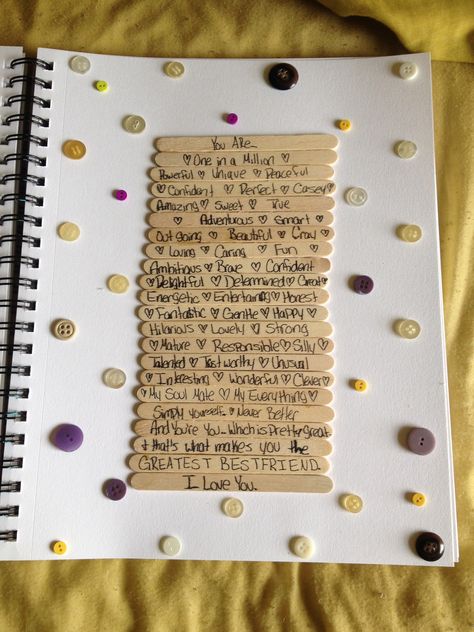 You ARE...
♡ One in a Million ♡
Powerful ♡ Unique ♡ Peaceful
♡ Confident ♡ Perfect ♡ Casey
Amazing ♡ Sweet ♡ True
♡ Adventurous ♡ Smart ♡
Out going ♡ Beautiful ♡ Cray
♡ Loving ♡ Caring ♡ Fun ♡
Ambitious ♡ Brave ♡ Confident
♡ Delightful ♡ Determined ♡ Great
Energetic ♡ Entertaining ♡ Honest
♡ Fantastic ♡ Gentle ♡ Happy
Hilarious ♡ Lovely ♡ Strong
♡ Mature ♡ Responsible ♡ Silly
Talented ♡ Trust worthy ♡ Unusual
♡ Interesting ♡ Wonderful ♡ Clever
♡ My Soul Mate ♡ My Everything ♡
Simply Yourself ♡ Never Better
And You're You... Which is Pretty Great
& that's what makes you the
GREATEST BESTFRIEND.
I Love You.